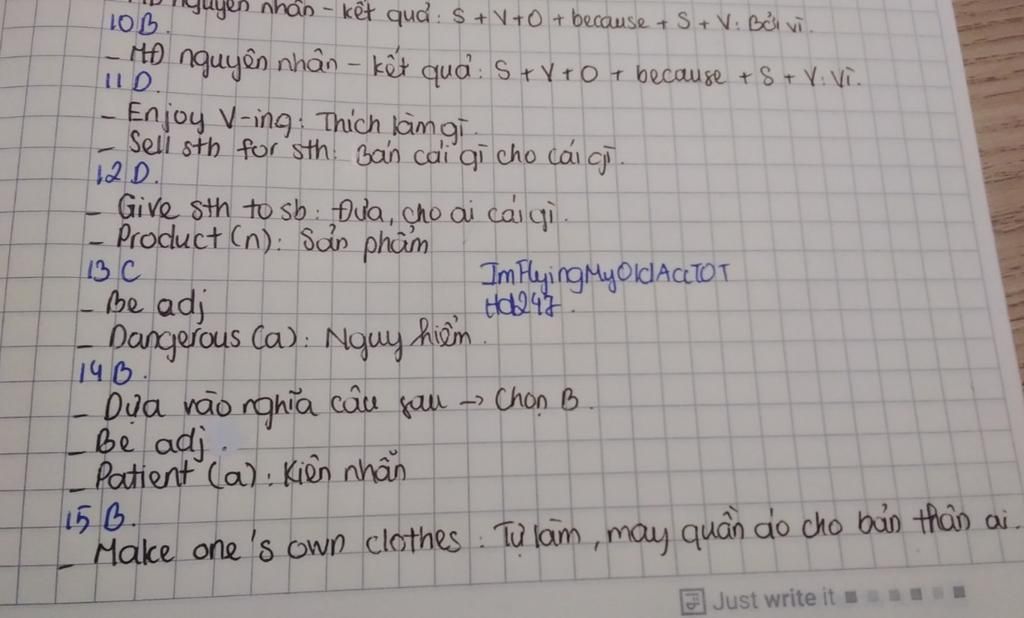 nguyên nhân - kết quả: S + V + O + because + S + V: Bởi vì.
10B.
- MĐ nguyên nhân - kết quả: S + V + O + because + S + V: vì.
11D.
- Enjoy V-ing: Thích làm gì.
- Sell sth for sth: Bán cái gì cho cái gì.
12D.
- Give sth to sb: Đưa, cho ai cái gì.
- Product (n): Sản phẩm
13C
ImFlyingMyOldAccTOT
- Be adj
Hd247.
- Dangerous (a): Nguy hiểm.
14B.
- Dựa vào nghĩa câu sau → Chọn B.
- Be adj.
- Patient (a): Kiên nhẫn
15B.
- Make one's own clothes: Tự làm, may quần áo cho bản thân ai.
Just write it